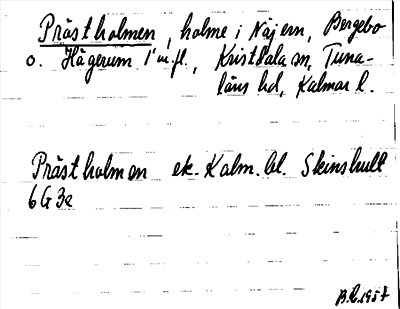 Prästholmen, holme i Näjern, Bergebo
o. Hägerum 1 m.fl., Kristdala sn, Tuna-
läns hd, Kalmar l.
Prästholmen ek. Kalm. bl. Skinshult
6G 3e
B.L. 1957